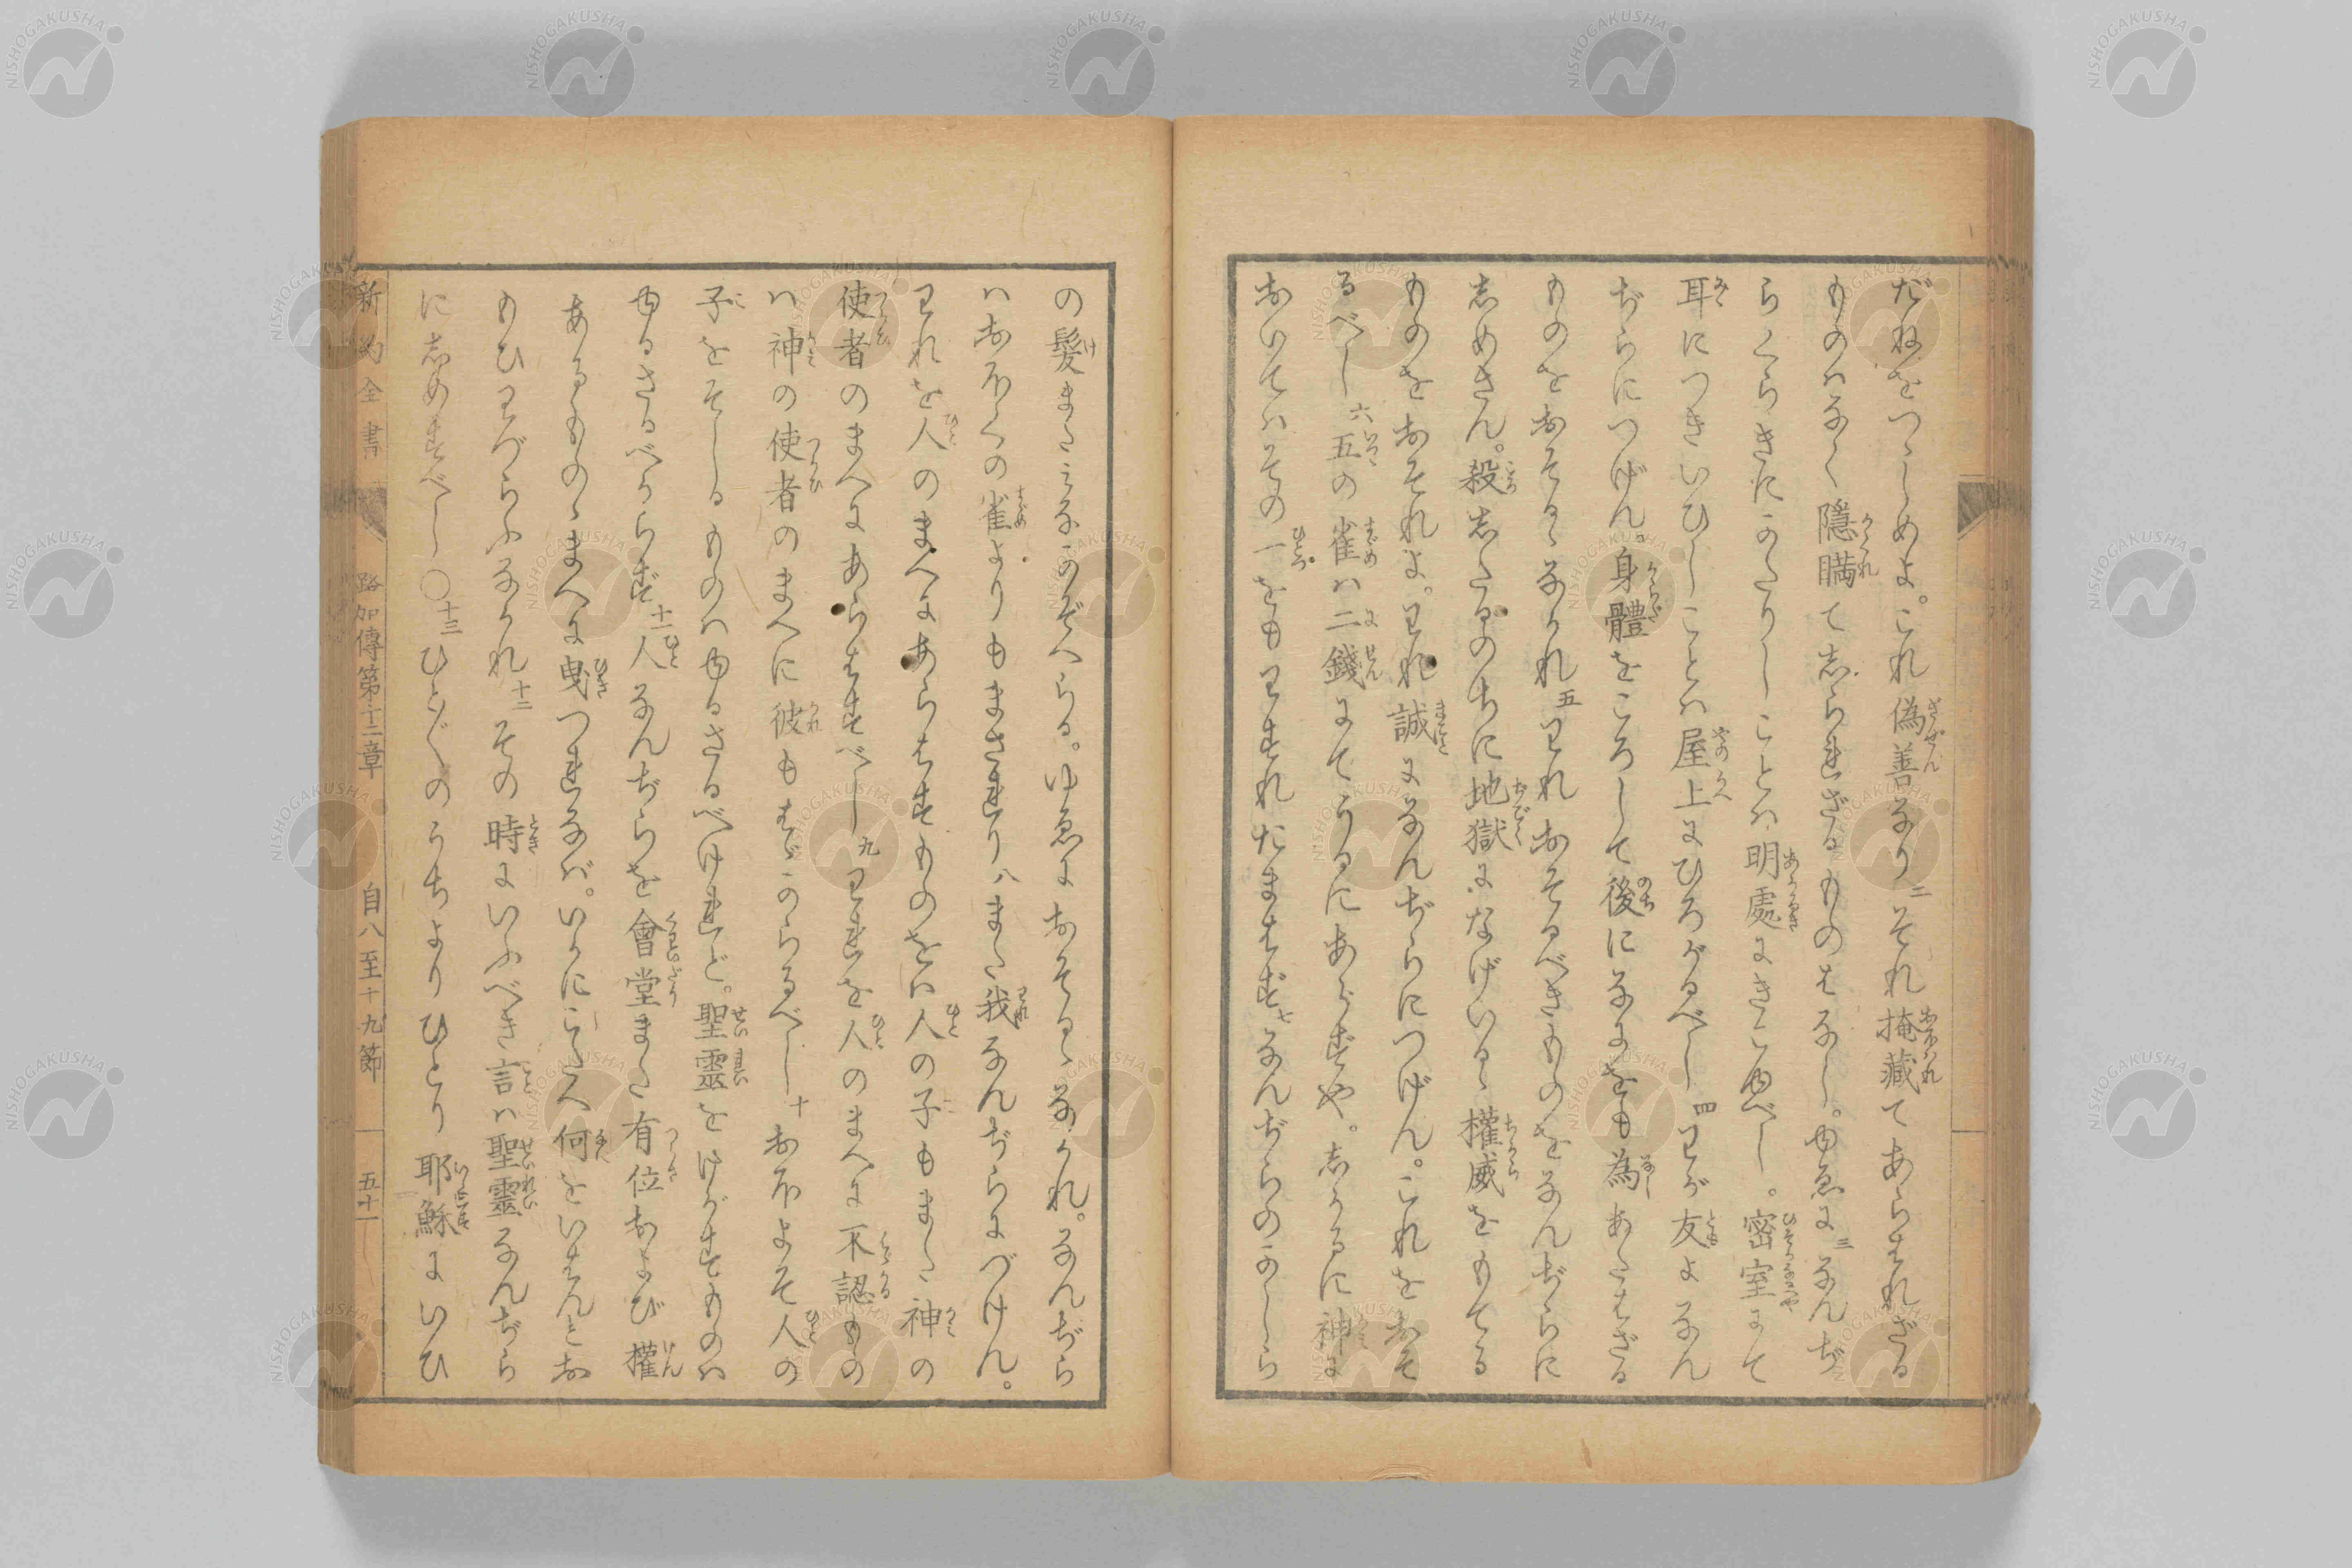 だねをつゝしめよ。これ偽善なり二それ掩藏てあらはれざる
ものハなく隱瞞て志られざるものはなし。ゆゑに三なんぢ
らくらきにかたりしことハ明處にきこゆべし。密室にて
耳につきいひしことハ屋上にひろがるべし四わが友よなん
ぢらにつげん。身體をころして後になにをも為あたはざる
ものをおそるゝなかれ五われおそるべきものをなんぢらに
志めさん。殺志たるのちに地獄になげいるゝ權威をもてる
ものをおそれよ。われ誠になんぢらにつげん。これをおそ
るべし六五の雀ハ二錢にてうるにあらずや。志かるに神に
おいてハその一をもわすれたまはず七なんぢらのかしら
の髮またミなかぞへらる。ゆゑにおそるゝなかれ。なんぢら
ハおほくの雀よりもまされり八また我なんぢらにつげん。
われを人のまへにあらはすものをハ人の子もまた神の
使者のまへにあらはすべし九われを人のまへに不認もの
ハ神の使者のまへに彼もまたしらるべし十おほよそ人の
子をそしるものハゆるさるべけれど。聖靈をけがすものハ
ゆるさるべからず十一人なんぢらを會堂また有位および權
あるものゝまへに曳つれなバ。いかにこたへ何をいはんとお
もひわづらふなかれ十二その時にいふべき言ハ聖靈なんぢら
に志めすべし〇十三ひとびとのうちよりひとり耶穌にいひ
新約全書
路加傳第十二章
自八至十九節
五十一
NISHOGAKUSHA